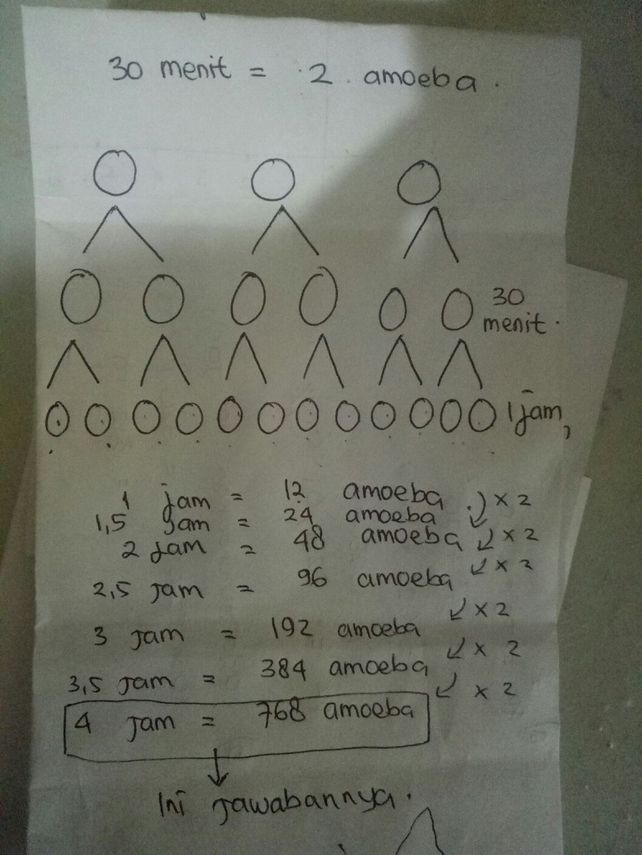 30 menit = 2 amoeba.
30
menit.
1 jam,
1 jam = 12 amoeba x 2
1,5 jam = 24 amoeba
2 jam = 48 amoeba x 2
2,5 jam = 96 amoeba x 2
3 jam = 192 amoeba x 2
3,5 jam = 384 amoeba x 2
4 jam = 768 amoeba x 2
Ini jawabannya.